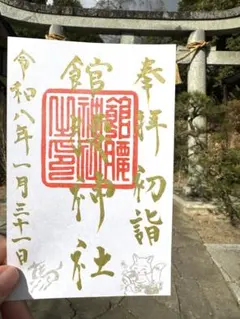 奉拝 初詣
館腰神社
館腰
神社
之印
令和八年一月三十一日